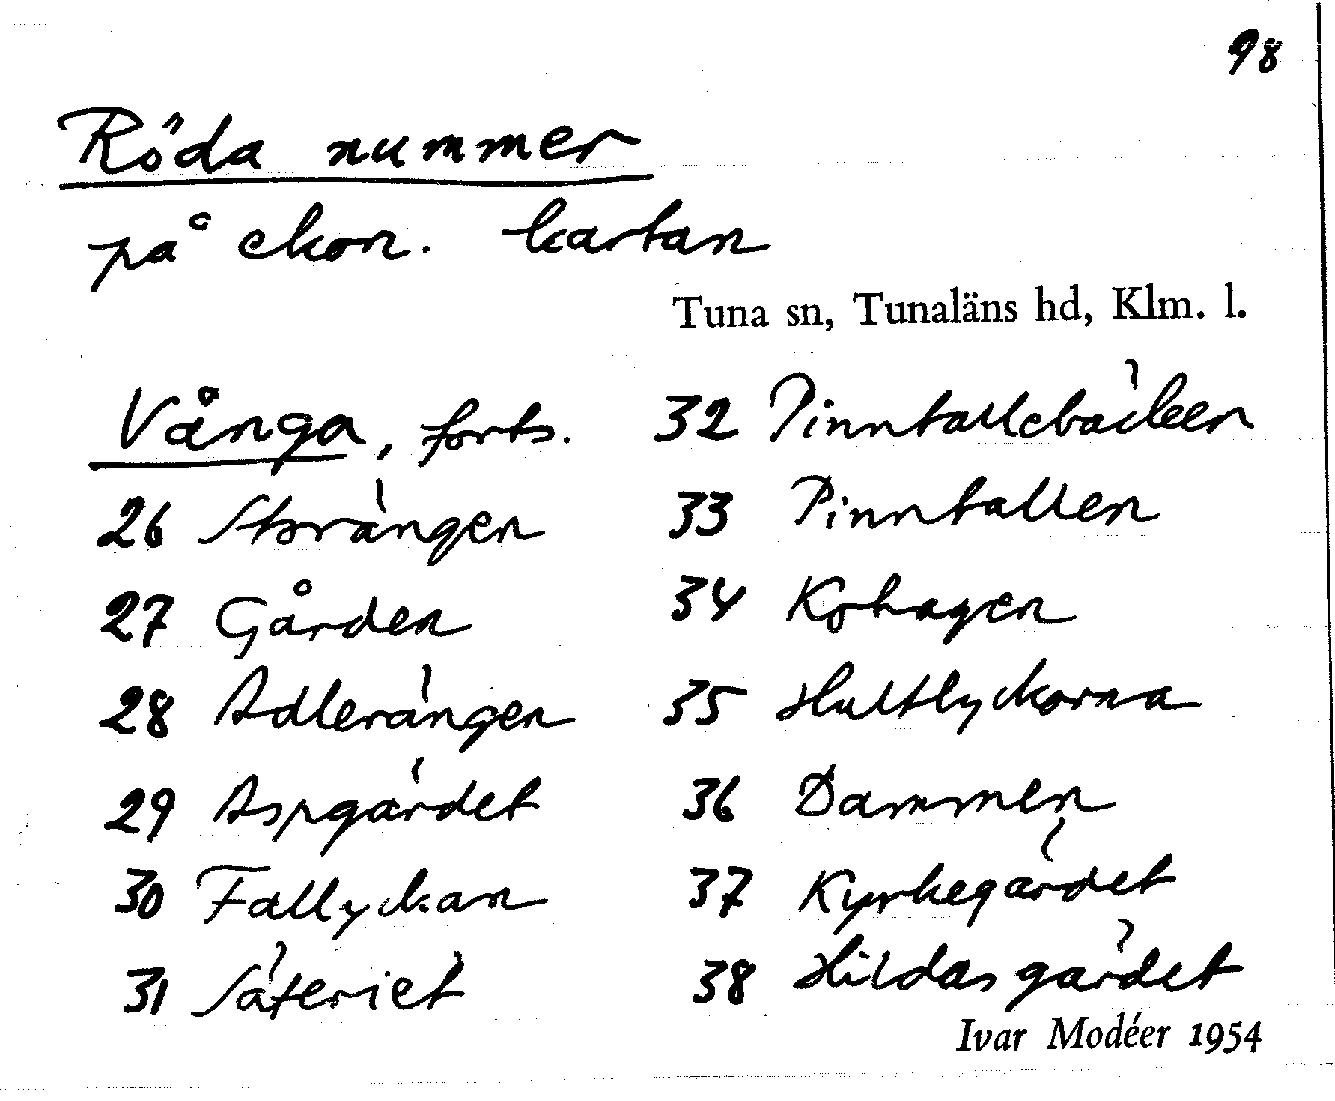 98
Röda nummer
på ekon. kartan
Tuna sn, Tunaläns hd, Klm. l.
Vånga, forts.
26 Storängen
27 Gården
28 Adlerängen
29 Aspgärdet
30 Fallyckan
31 Säteriet
32 Pinntallebäcken
33 Pinntallen
34 Kohagen
35 Hultlyckorna
36 Dammen
37 Kyrkegärdet
38 Hildasgärdet
Ivar Modéer 1954